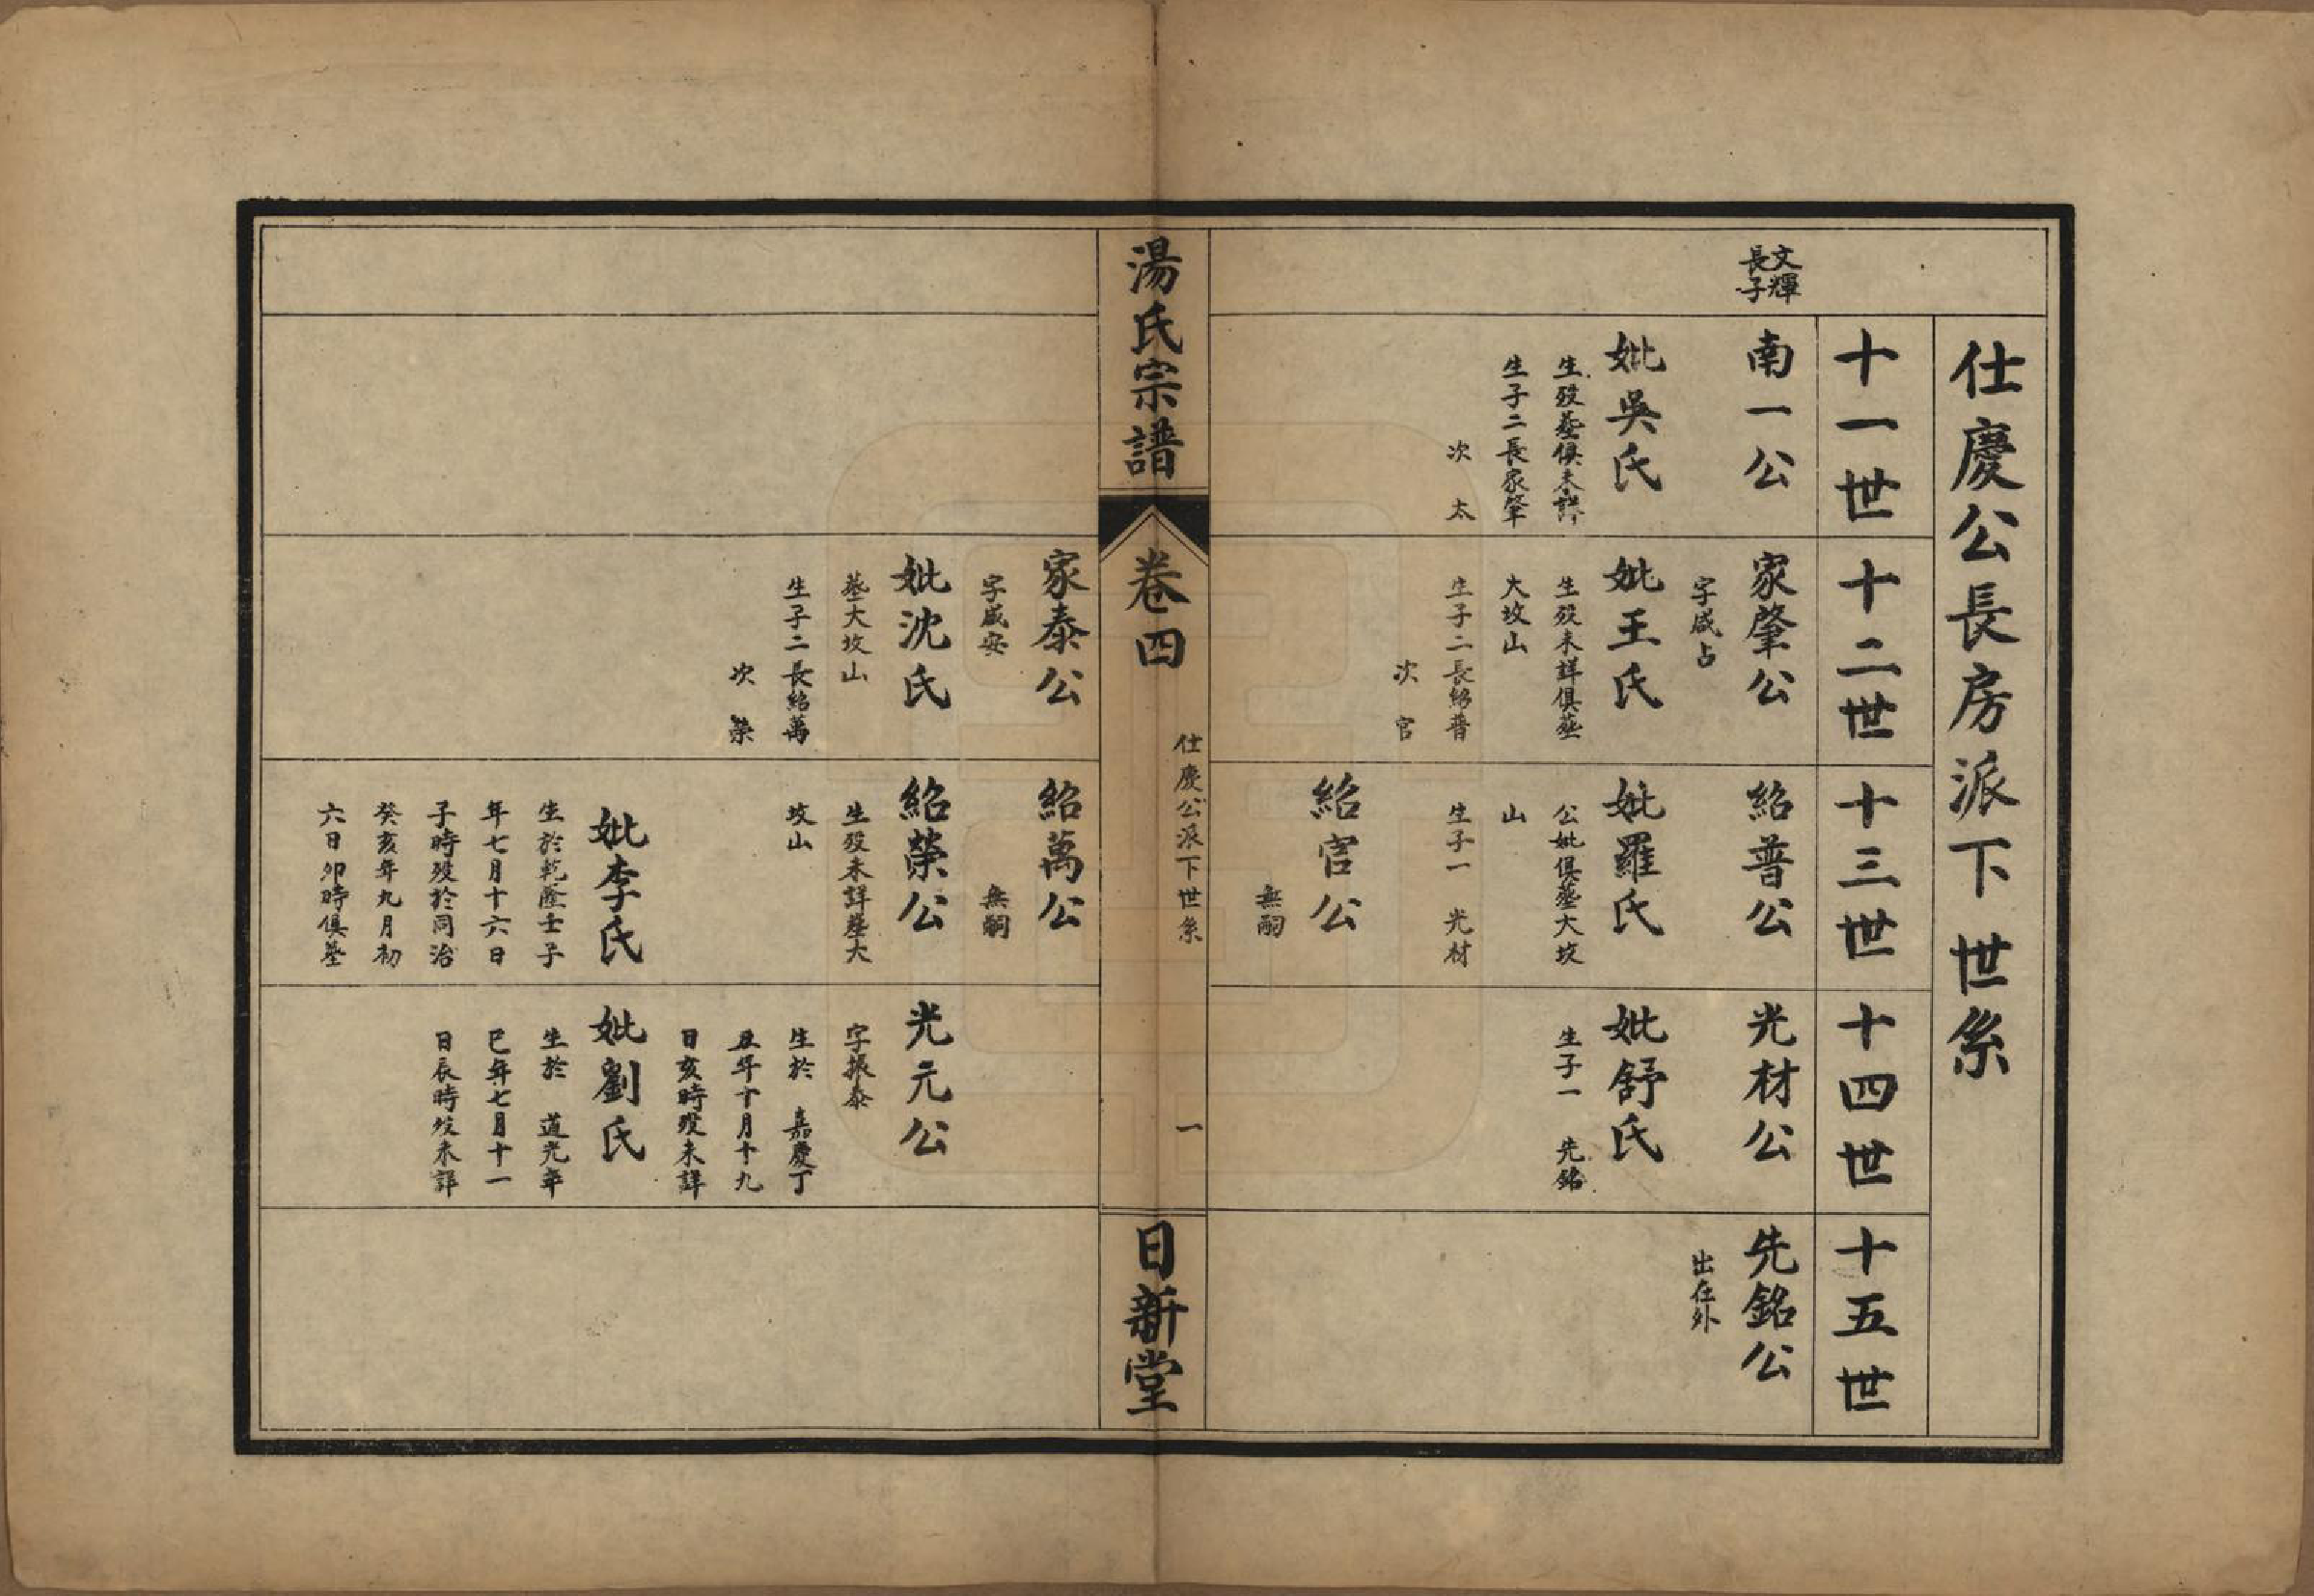 仕慶公長房派下世系
十一世
十二世
十三世
十四世
十五世
文輝
長子
南一公
妣吳氏
生歿塟俱未詳
生子二長家肇
次　太
家肇公
字咸占
妣王氏
生歿未詳俱塟
大坟山
生子二長紹普
次　官
紹普公
妣羅氏
公妣俱塟大坟
山
生子一　光材
紹官公
無嗣
光材公
妣舒氏
生子一　先銘
先銘公
出在外
湯氏宗譜
卷四
仕慶公派下世系
一
日新堂
家泰公
字咸安
妣沈氏
塟大坟山
生子二長紹萬
次　榮
紹萬公
無嗣
紹榮公
生歿未詳塟大
坟山
妣李氏
生於乾隆壬子
年七月十六日
子時歿於同治
癸亥年九月初
六日卯時俱塟
光元公
字振泰
生於　嘉慶丁
丑年十月十九
日亥時歿未詳
妣劉氏
生於　道光辛
巳年七月十一
日辰時歿未詳